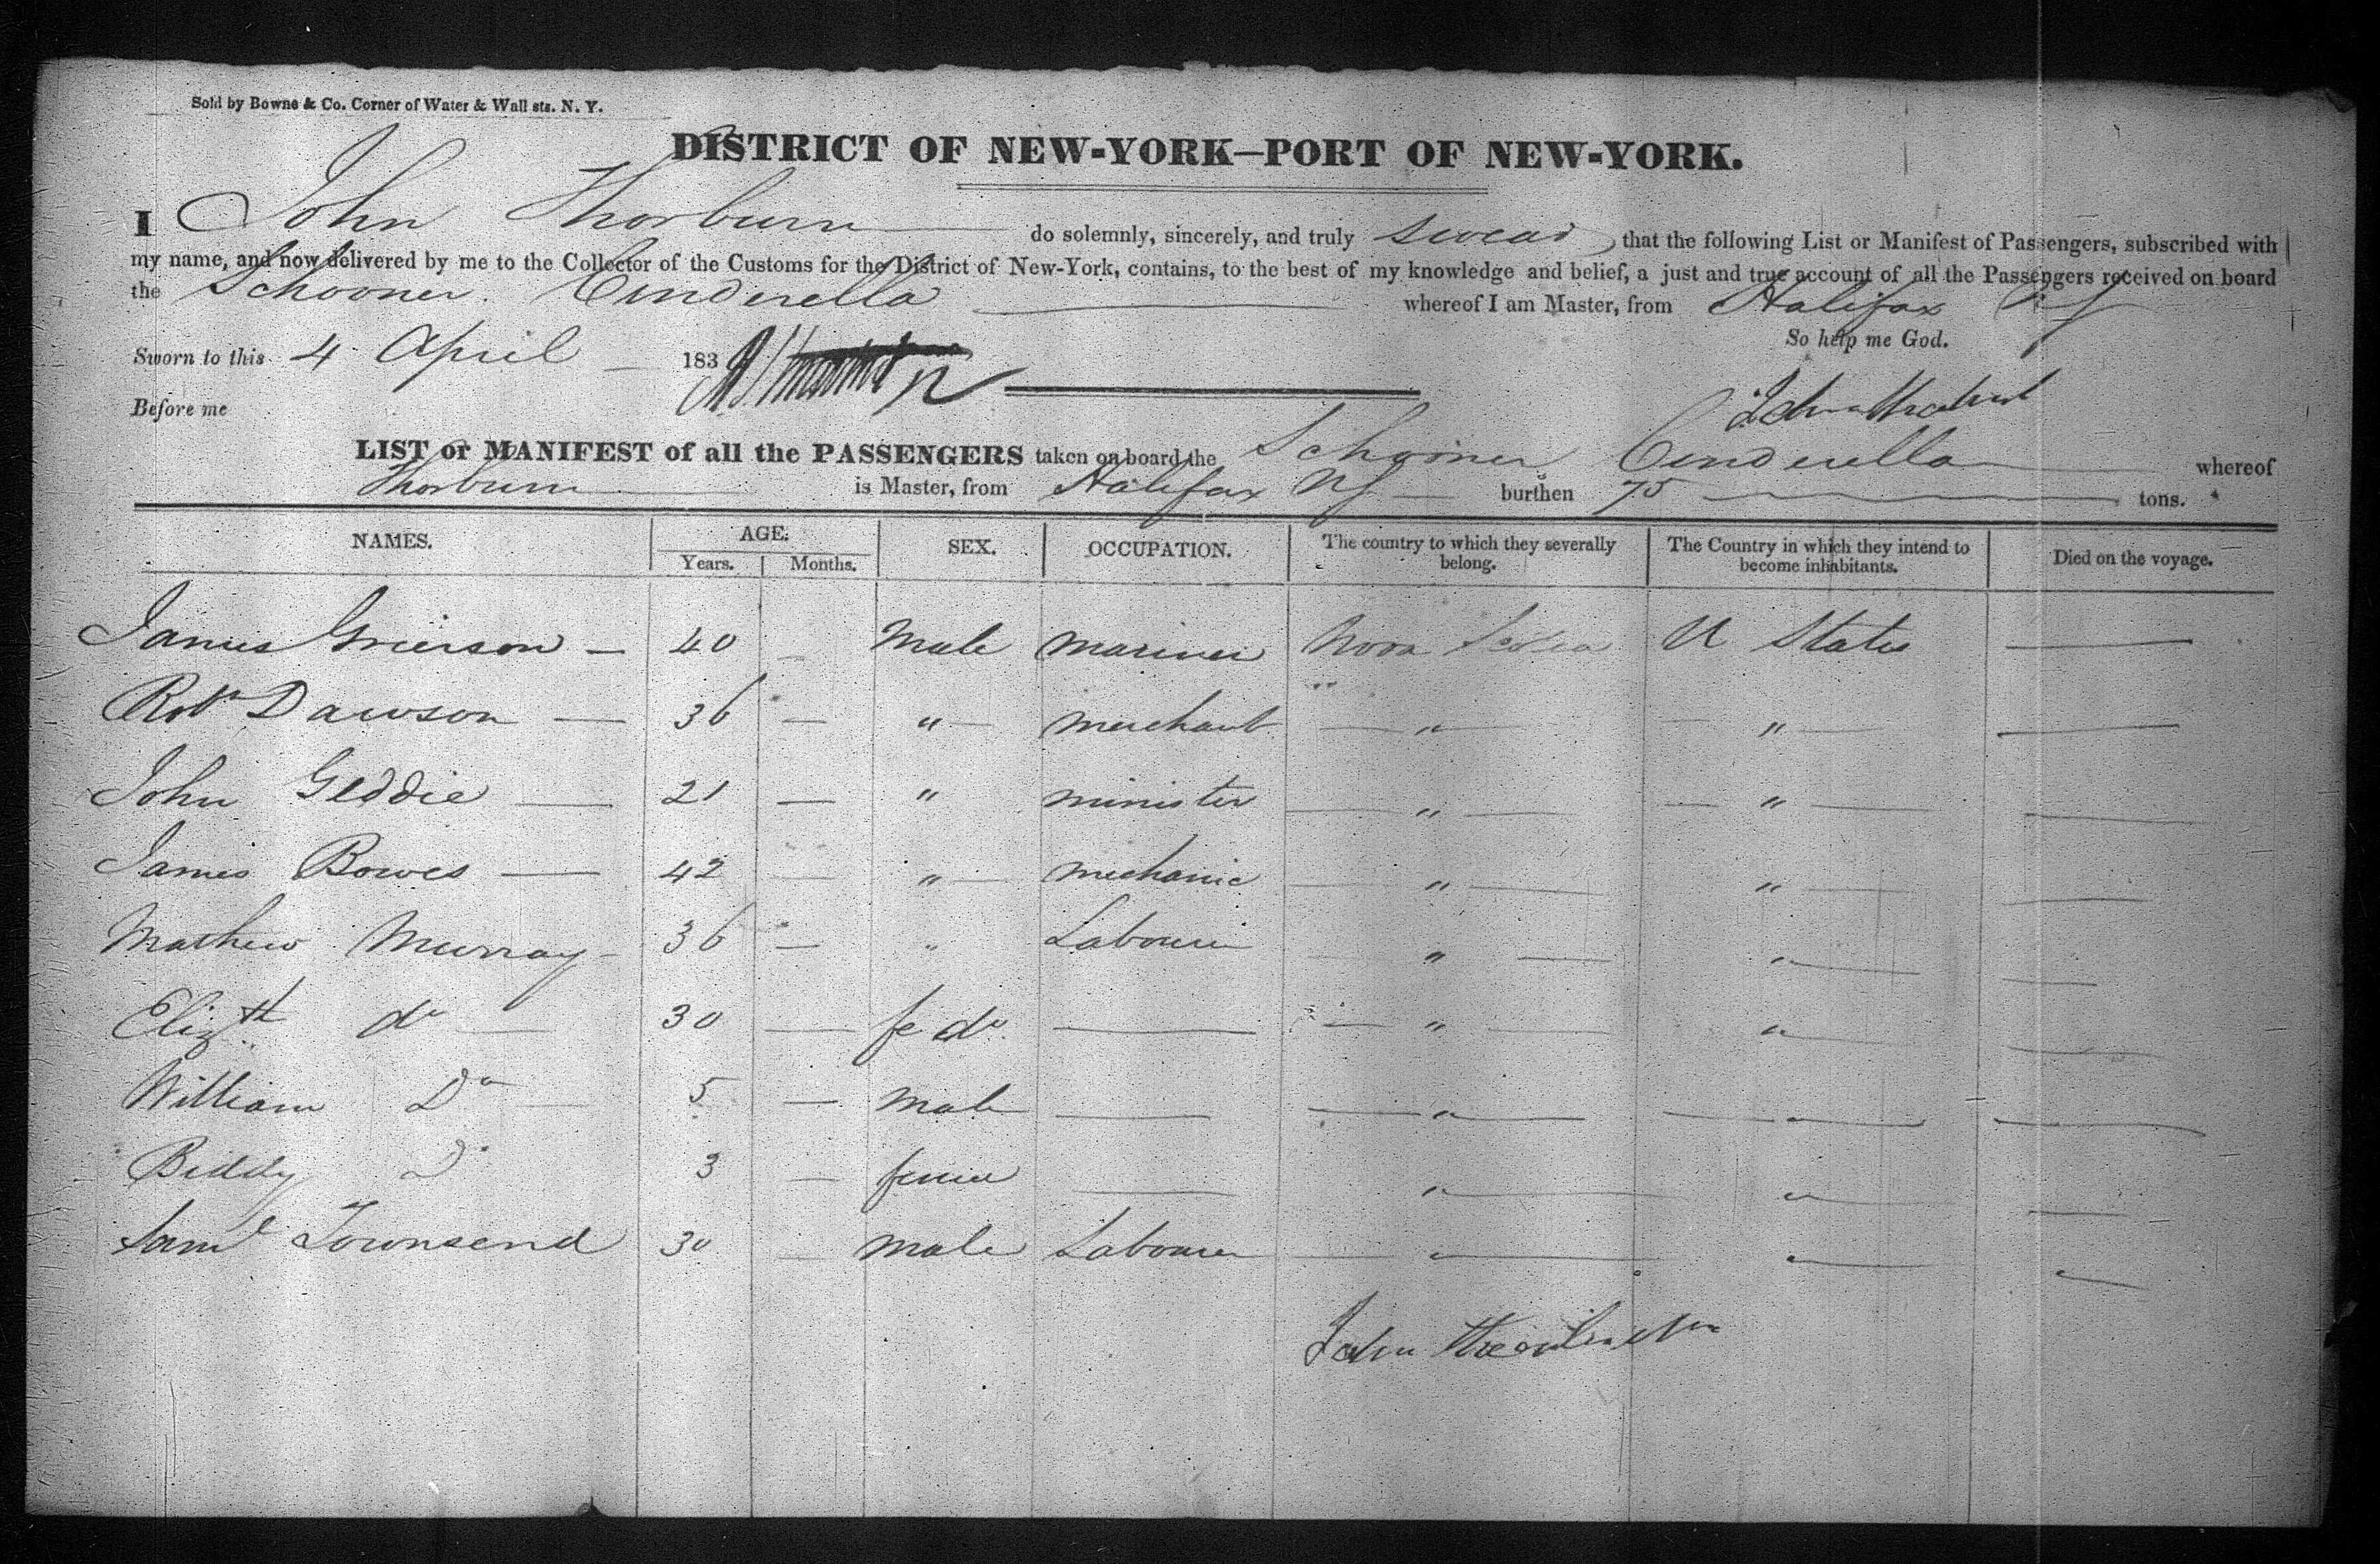 Sold by Bowne & Co. Corner of Water & Wall sts. N. Y.
DISTRICT OF NEW-YORK—PORT OF NEW-YORK.
I John Thorburn do solemnly, sincerely, and truly swear, that the following List or Manifest of Passengers, subscribed with
my name, and now delivered by me to the Collector of the Customs for the District of New-York, contains, to the best of my knowledge and belief, a just and true account of all the Passengers received on board
the Schooner Cinderella whereof I am Master, from Halifax NS
So help me God.
Sworn to this 4 April 183
Before me
LIST or MANIFEST of all the PASSENGERS taken on board the Schooner Cinderella whereof
Thorburn is Master, from Halifax NS burthen 75 tons.
NAMES. AGE. SEX. OCCUPATION. The country to which they severally belong. The Country in which they intend to become inhabitants. Died on the voyage.
Years. Months.
James Grierson — 40 — Male mariner Nova Scotia U States —
Robt Dawson — 36 — " merchant " " —
John Geddie — 21 — " minister " " —
James Bowes — 42 — " mechanic " " —
Mathew Murray 36 — " Labourer " " —
Elizth do — 30 — fe do — " " —
William Do — 5 — male — " " —
Biddy Do 3 — female — " " —
Saml Townsend 30 — male Labourer " " —